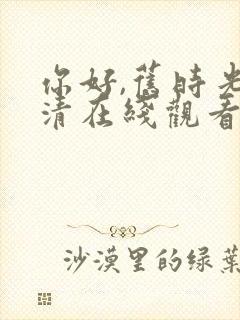 你好,舊時光
清在綫觀看
沙漠里的绿葉